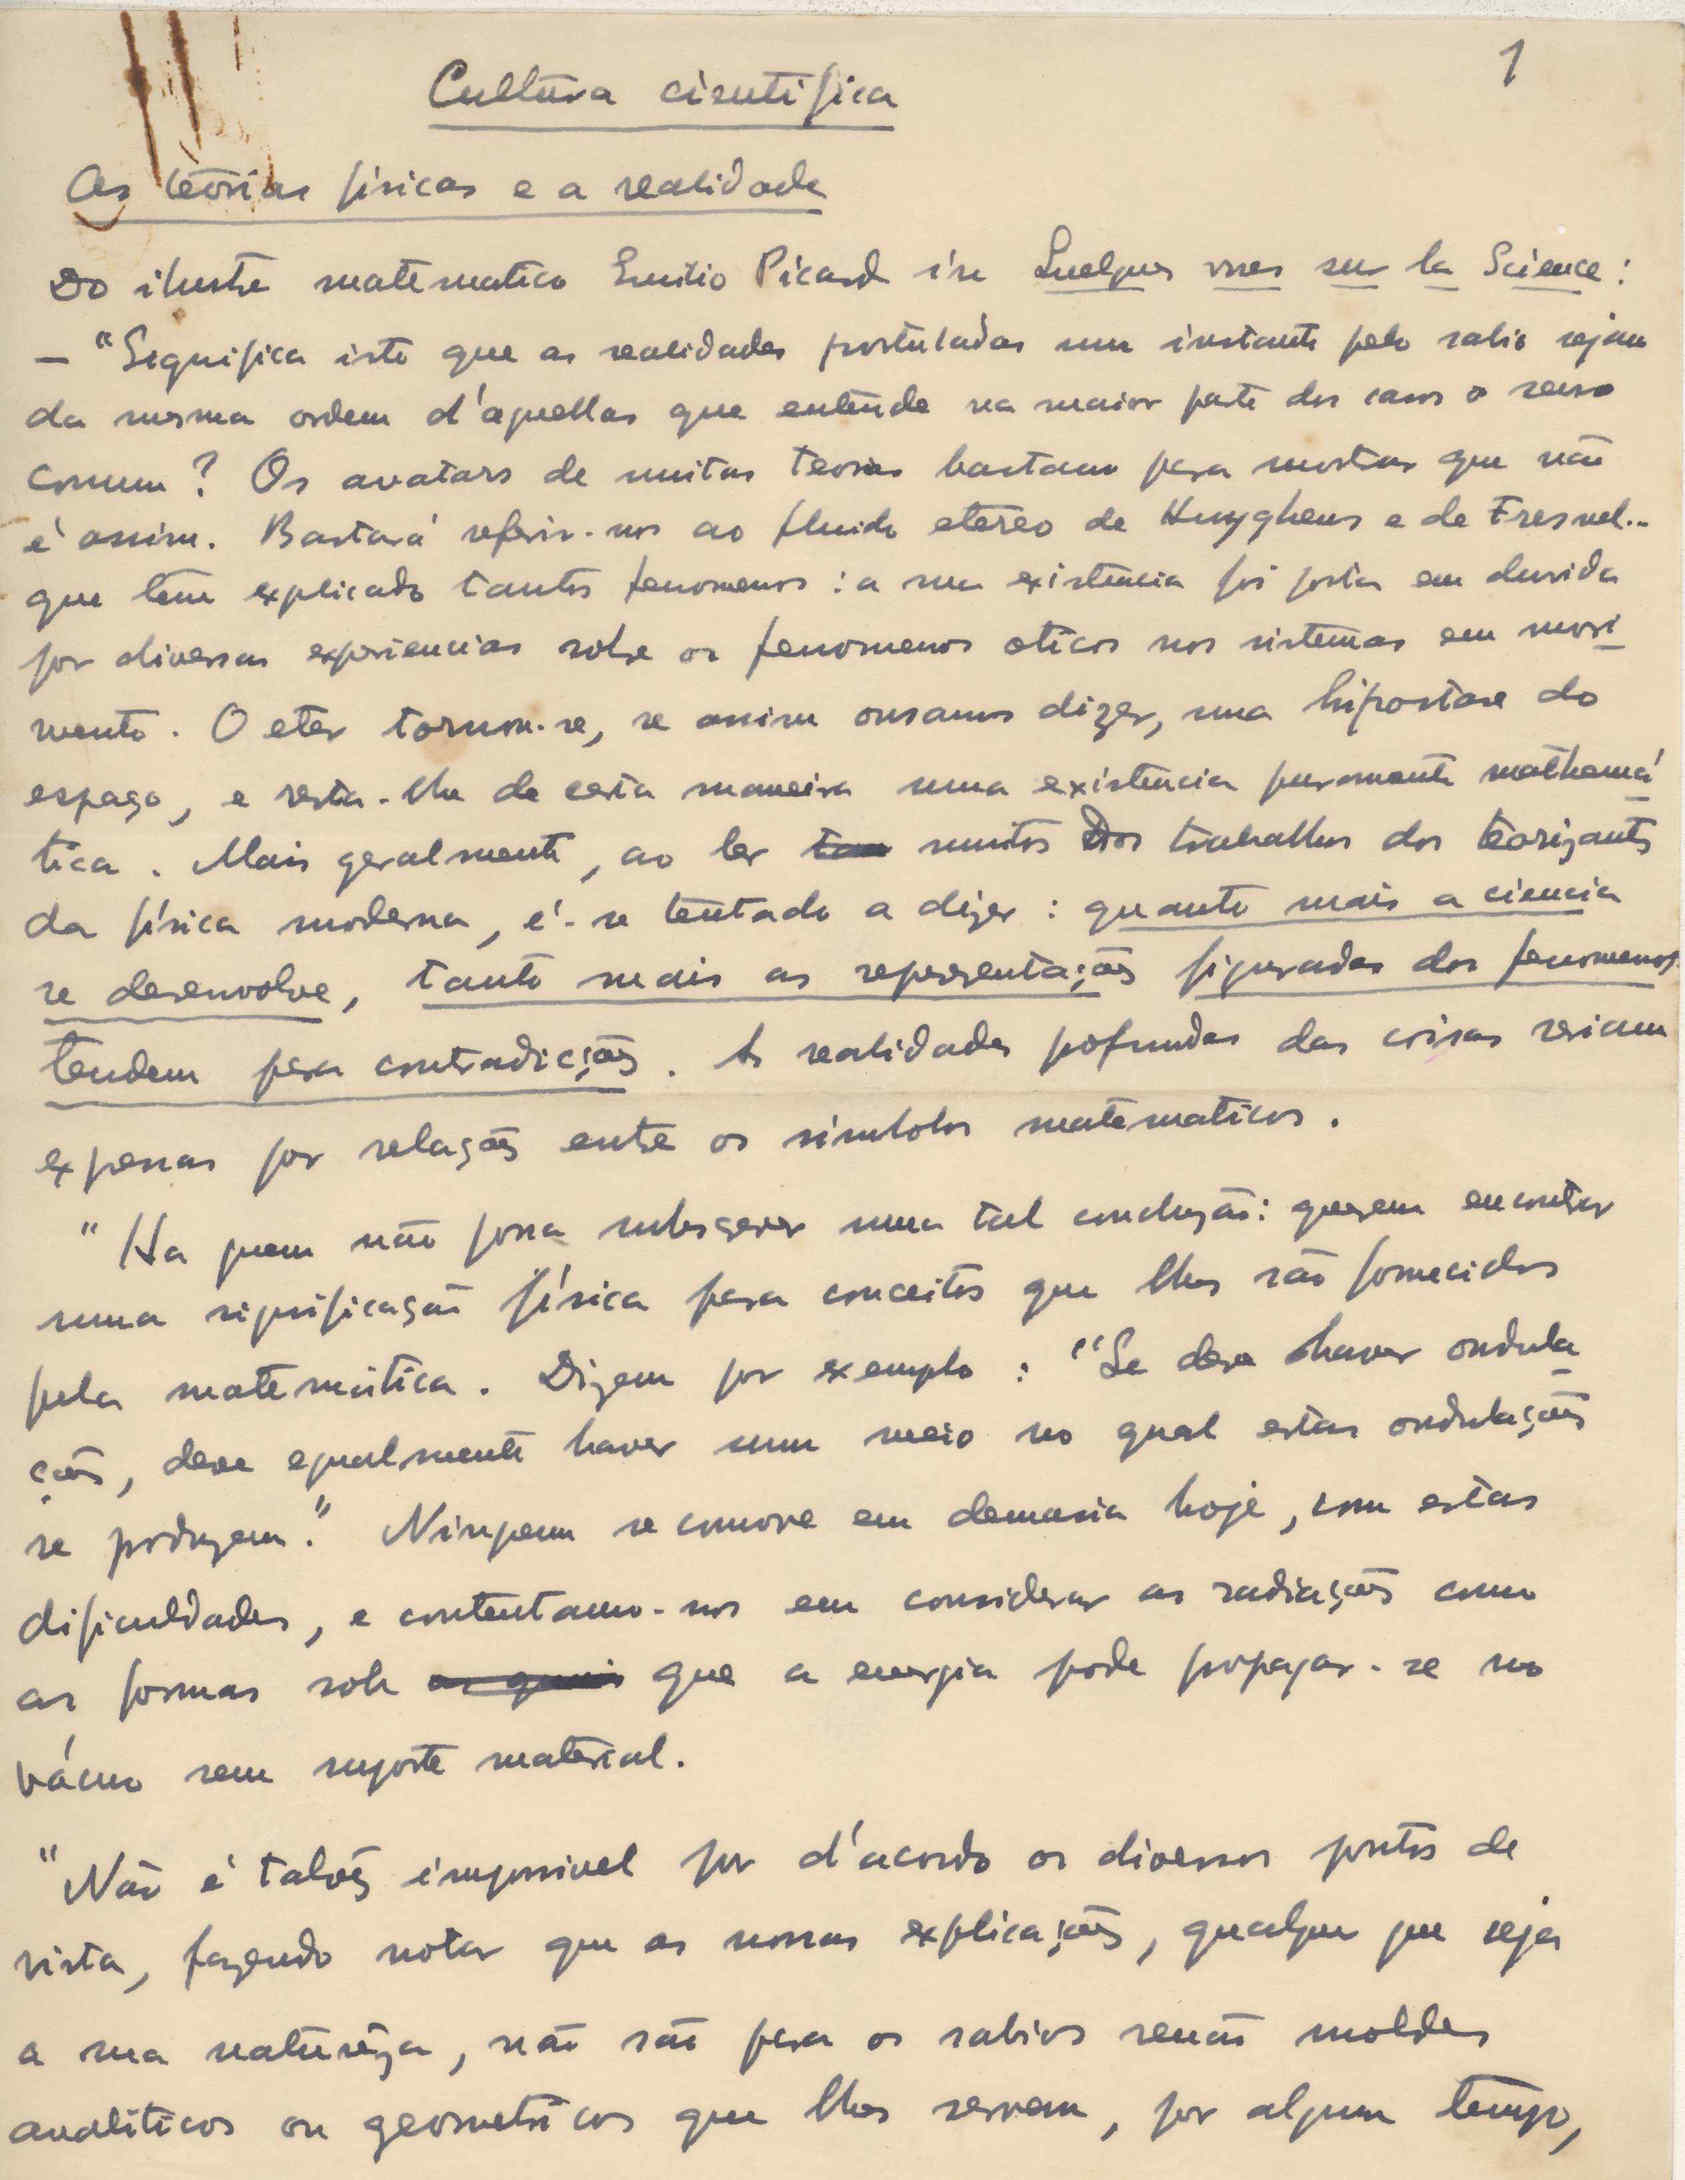 1
Cultura cientifica
As teorias fisicas e a realidade
Do ilustre matematico Emilio Picard in Quelques vues sur la Science:
— "Significa isto que as realidades postuladas num instante pelo sabio sejam
da mesma ordem d'aquellas que entende na maior parte dos casos o senso
comum? Os avatars de muitas teorias bastam para mostrar que não
é assim. Bastará referir-nos ao fluido etéreo de Huyghens e de Fresnel..
que tem explicado tantos fenomenos: a sua existencia foi posta em duvida
por diversas experiencias sobre os fenomenos oticos nos sistemas em movi
mento. O eter tornou-se, se assim ousamos dizer, uma hipostase do
espaço, e resta-lhe de certa maneira uma existencia puramente mathemá
tica. Mais geralmente, ao ler muitos dos trabalhos dos teorizantes
da física moderna, é-se tentado a dizer: quanto mais a ciencia
se desenvolve, tanto mais as representações figuradas dos fenomenos
tendem para contradicções. As realidades profundas das coisas seriam
expressas por relações entre os simbolos matematicos.
"Ha quem não possa subscrever uma tal conclusão: querem encontrar
uma significação física para conceitos que lhes são fornecidos
pela matemática. Dizem por exemplo: "Se deve haver ondula
ções, deve egualmente haver um meio no qual estas ondulações
se produzem." Ninguem se comove em demasia hoje, com estas
dificuldades, e contentamo-nos em considerar as radiações como
as formas sob que a energia pode propagar-se no
vácuo sem suporte material.
"Não é talvês impossivel pôr d'acordo os diversos pontos de
vista, fazendo notar que as nossas explicações, qualquer que seja
a sua naturêza, não são para os sabios senão moldes
analiticos ou geometricos que lhes servem, por algum tempo,